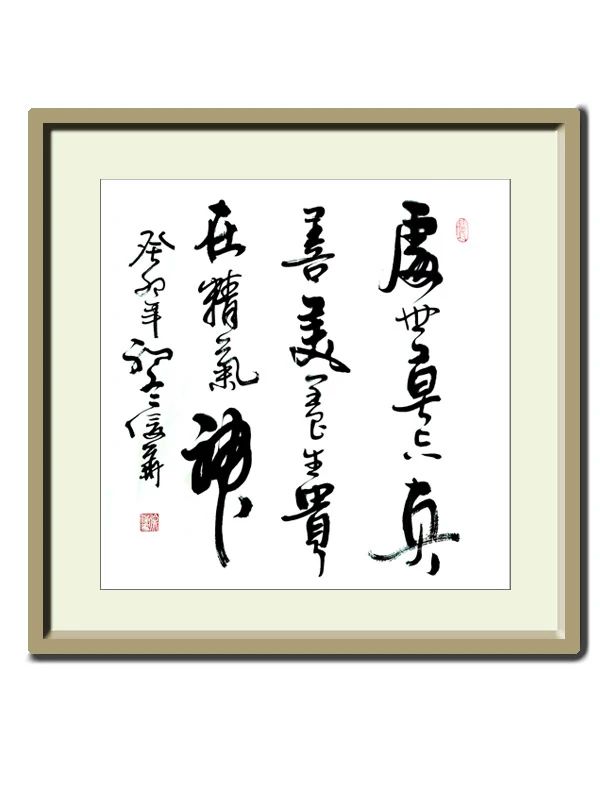 處世莫忘真
善美養生貴
在精氣神
癸卯年